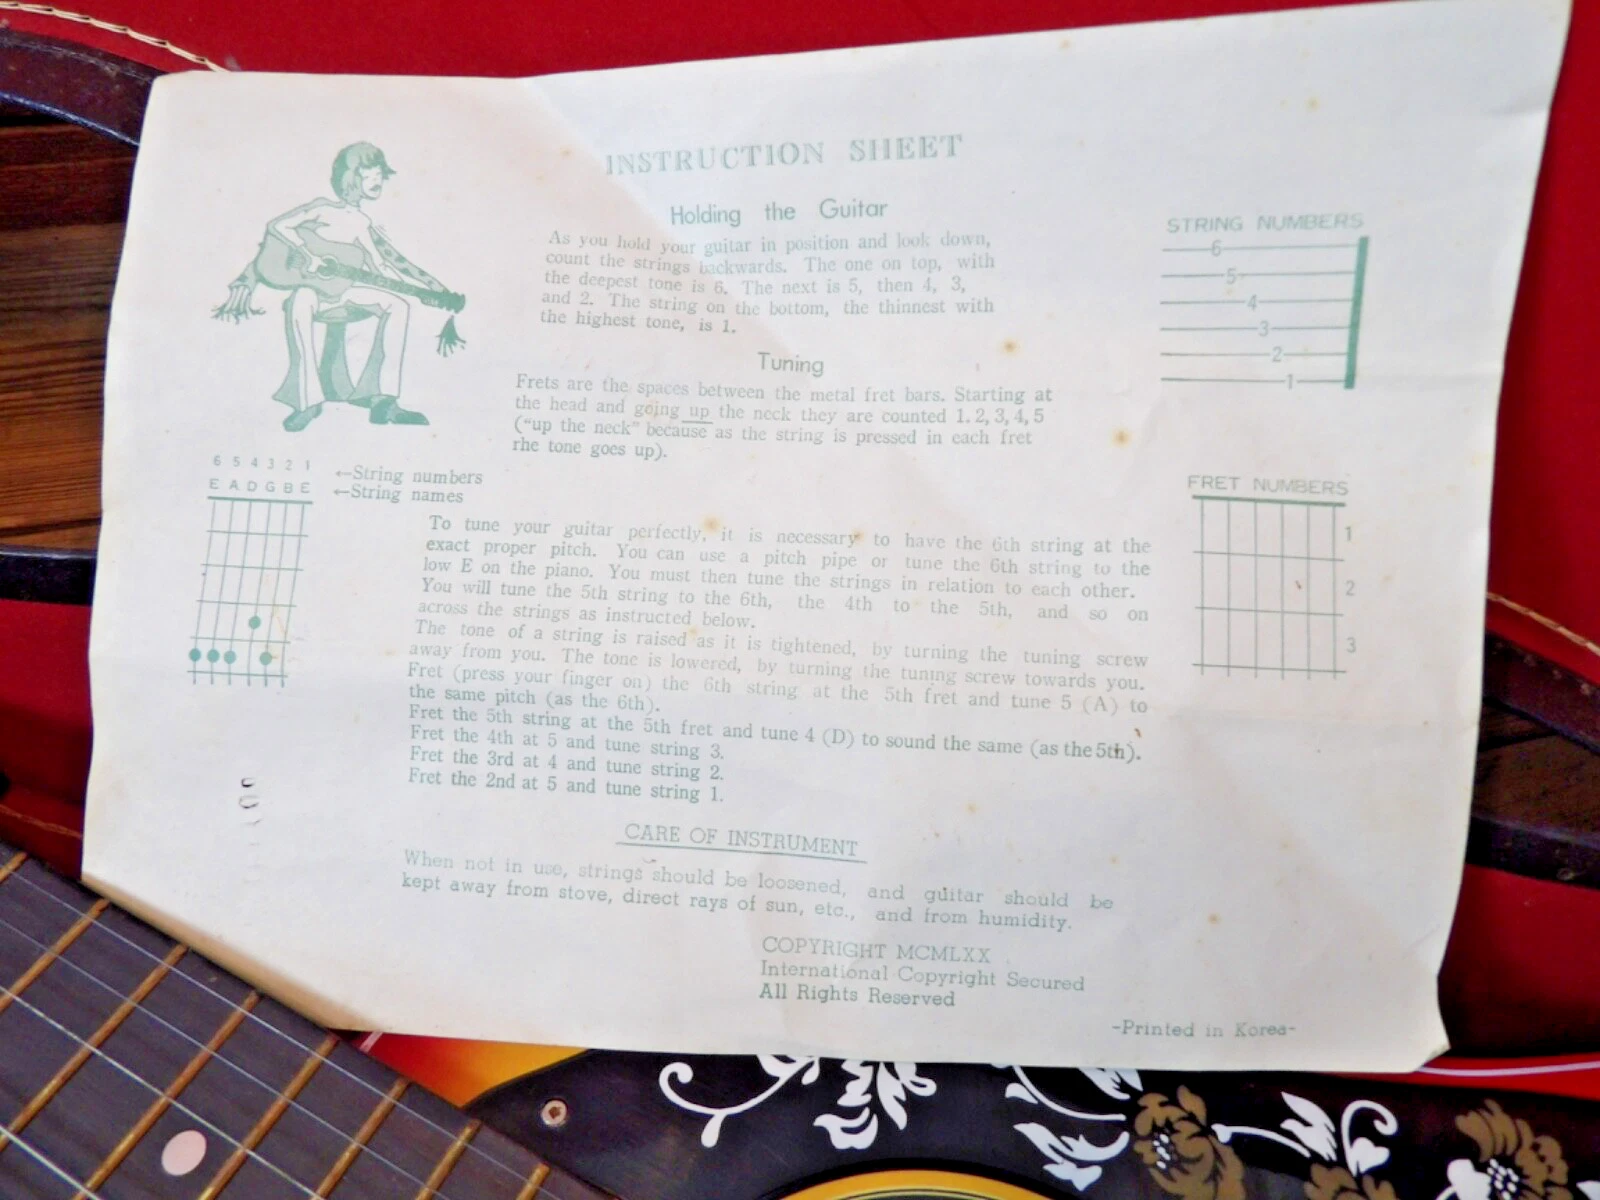 INSTRUCTION SHEET
Holding the Guitar
As you hold your guitar in position and look down,
count the strings backwards. The one on top, with
the deepest tone is 6. The next is 5, then 4, 3,
and 2. The string on the bottom, the thinnest with
the highest tone, is 1.
STRING NUMBERS
6
5
4
3
2
1
Tuning
Frets are the spaces between the metal fret bars. Starting at
the head and going up the neck they are counted 1, 2, 3, 4, 5
("up the neck" because as the string is pressed in each fret
rhe tone goes up).
6 5 4 3 2 1 ←String numbers
E A D G B E ←String names
FRET NUMBERS
1
2
3
To tune your guitar perfectly, it is necessary to have the 6th string at the
exact proper pitch. You can use a pitch pipe or tune the 6th string to the
low E on the piano. You must then tune the strings in relation to each other.
You will tune the 5th string to the 6th, the 4th to the 5th, and so on
across the strings as instructed below.
The tone of a string is raised as it is tightened, by turning the tuning screw
away from you. The tone is lowered, by turning the tuning screw towards you.
Fret (press your finger on) the 6th string at the 5th fret and tune 5 (A) to
the same pitch (as the 6th).
Fret the 5th string at the 5th fret and tune 4 (D) to sound the same (as the 5th).
Fret the 4th at 5 and tune string 3.
Fret the 3rd at 4 and tune string 2.
Fret the 2nd at 5 and tune string 1.
CARE OF INSTRUMENT
When not in use, strings should be loosened, and guitar should be
kept away from stove, direct rays of sun, etc., and from humidity.
COPYRIGHT MCMLXX
International Copyright Secured
All Rights Reserved
-Printed in Korea-